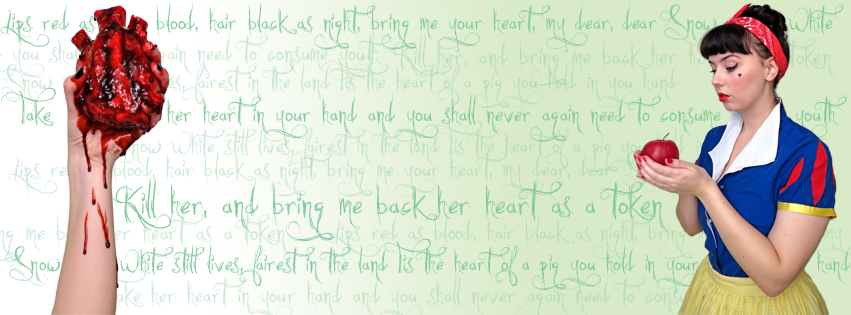 Lips red as blood, hair black as night, bring me your heart, my dear, dear Snow White
you shall again need to consume youth Kill her, and bring me back her heart
Snow lives, fairest in the land 'Tis the heart of a pig you hold in you hand
Take her heart in your hand and you shall never again need to consume youth
Snow White still lives, fairest in the land 'Tis the heart of a pig you
Lips red blood, hair black as night, bring me your heart, my dear, dear
Kill her, and bring me back her heart as a token
bring me ba her heart as a token Lips red as blood, hair black as night, bring
Snow White still lives, fairest in the land 'Tis the heart of a pig you hold in your hand
Take her heart in your hand and you shall never again need to cons